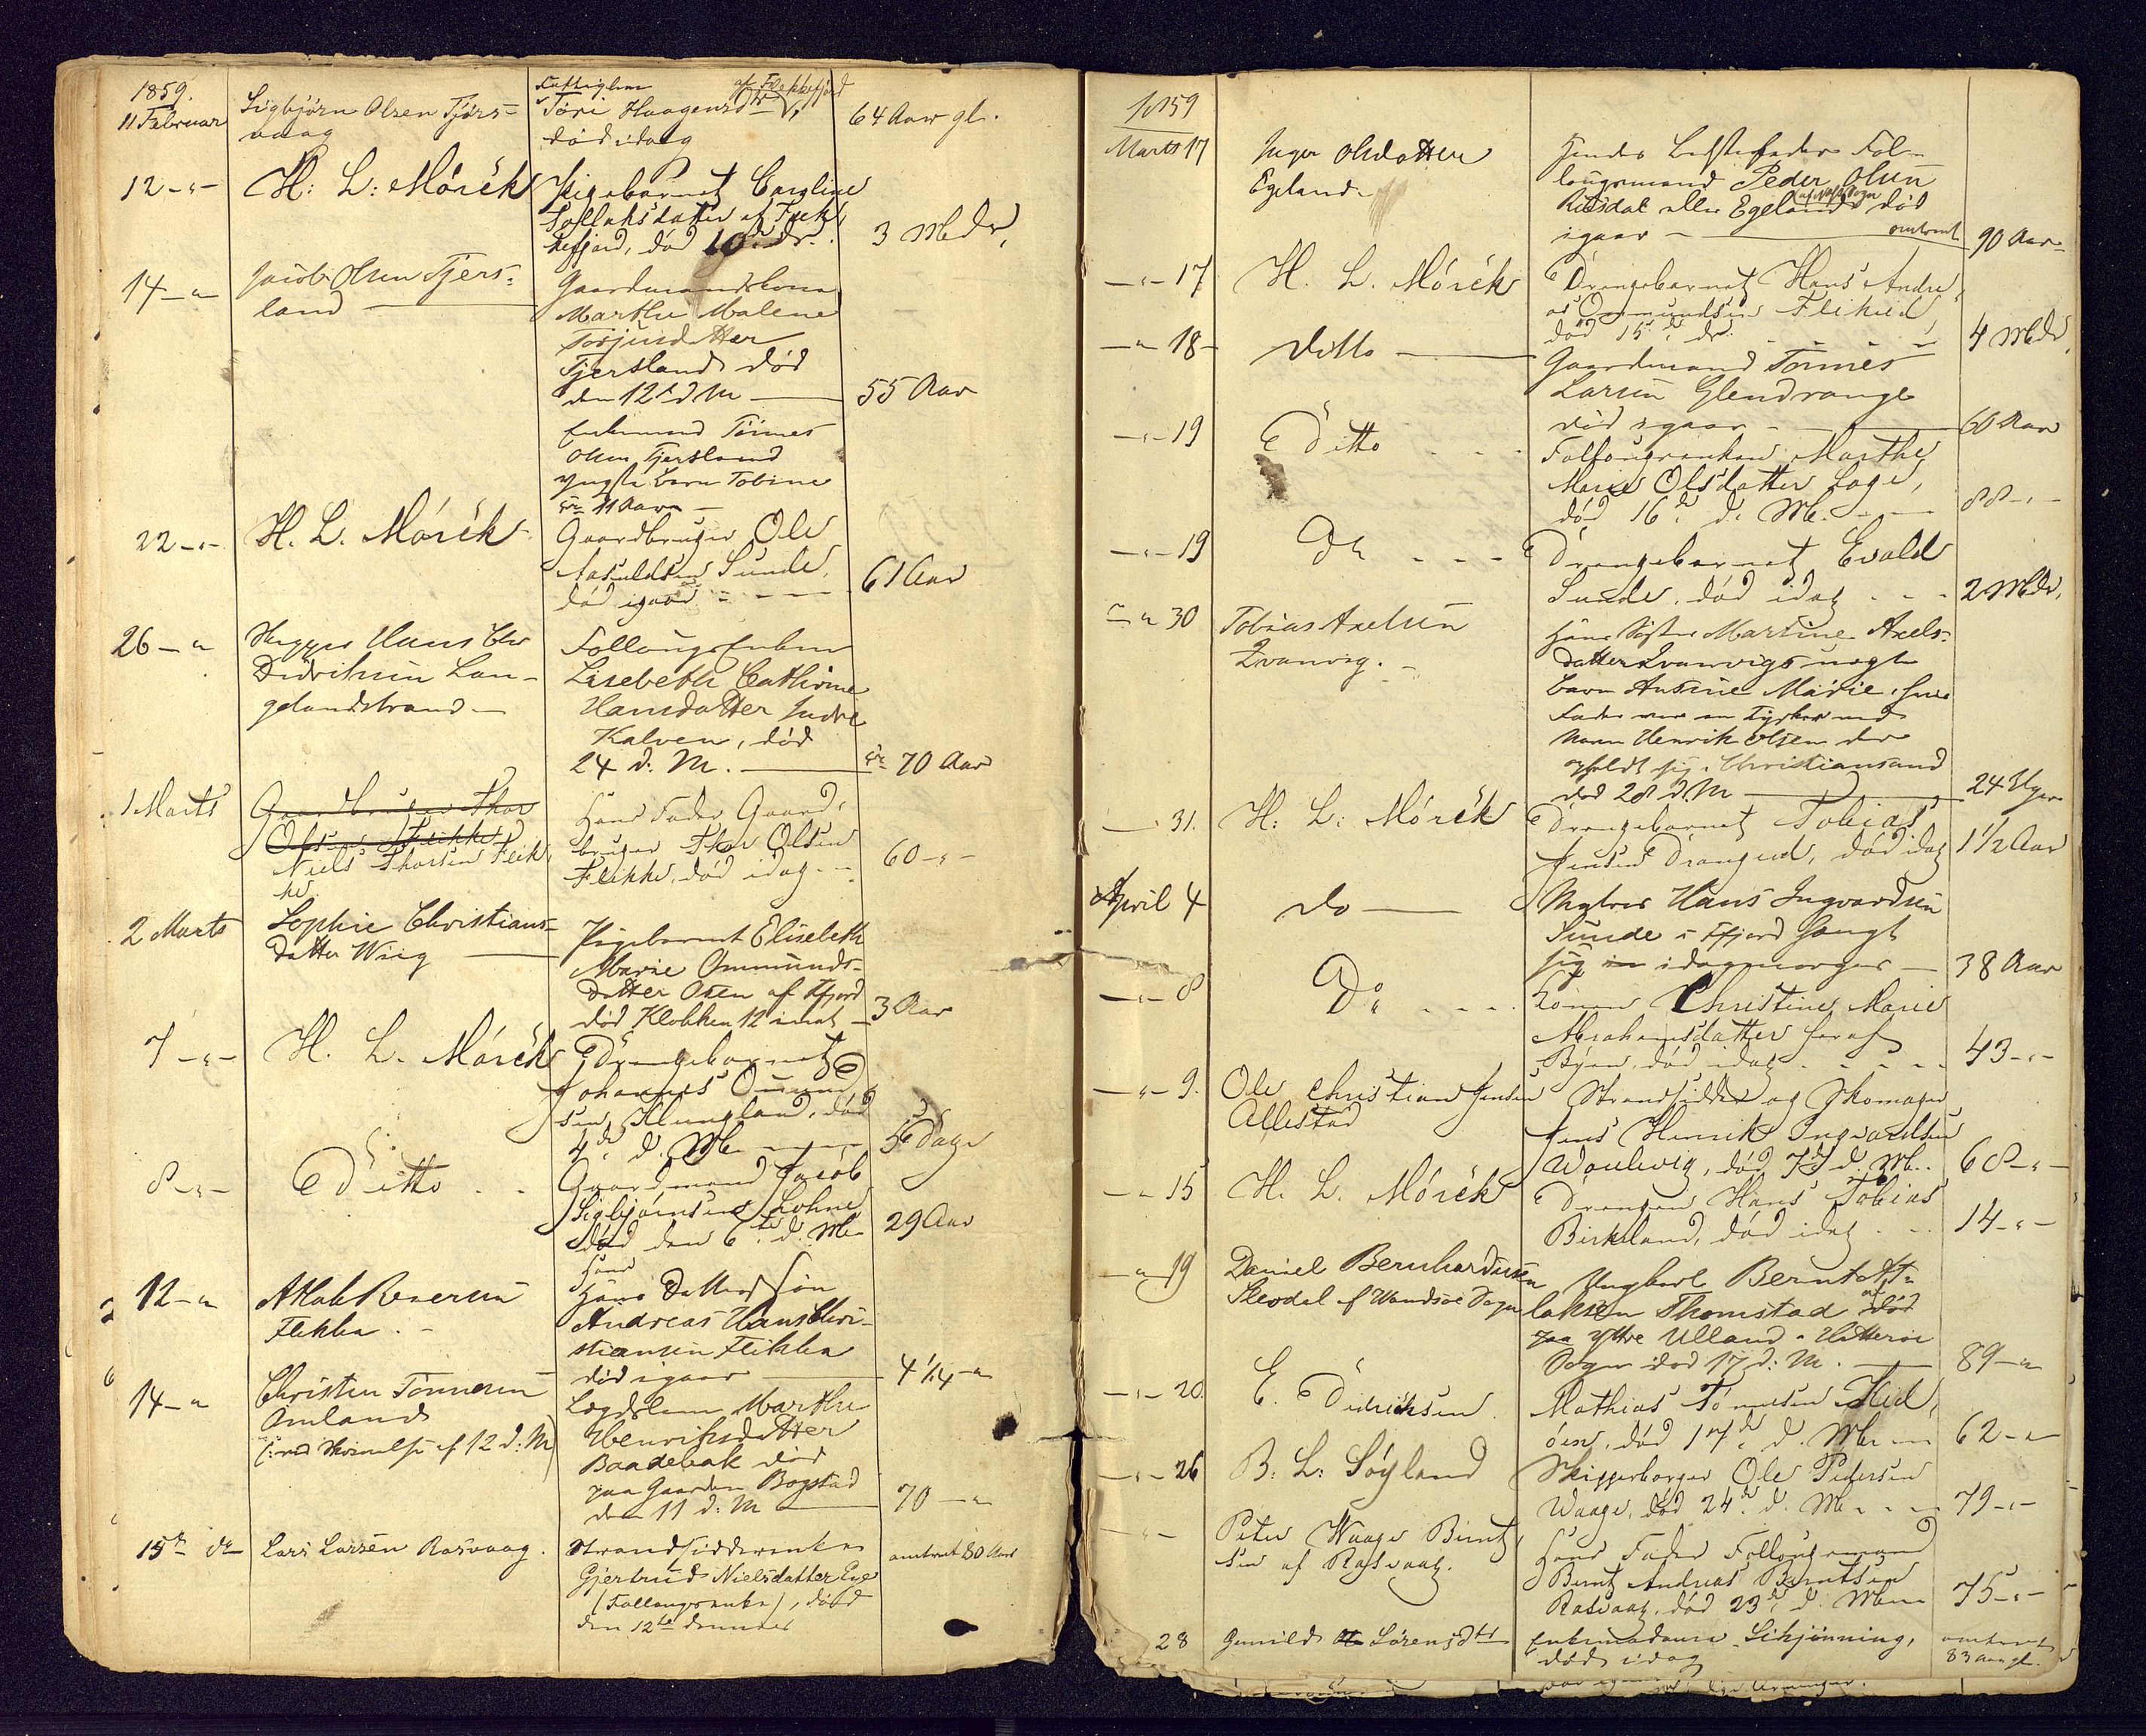 1859.
11 Februar
Sigbjørn Olsen Tjørs-
vaag
Fattiglem af Flekkefjord
Tøri Haagensd
død idag
64 Aar gl.
12 -"-
H: L: Mørck
Pigebarnet Caroline
Tollaksdatter af Flek-
kefjord, død 10de ds.
3 Mdr.
14 - "
Jacob Olsen Tjers-
land
Gaardmandskone
Marthe Malene
Torjusdatter
Tjersland død
den 12te d M
55 Aar
Enkemand Tönnes
Olsen Tjersland
yngste barn Tobine
er 11 Aar
22 -"-
H. L. Mørck
Gaardbruger Ole
Aasuldsen Sunde,
død igaar
61 Aar
26 - "
Skipper Hans Chr
Didriksen Lan-
gelandstrand
FollougsEnken
Lisebeth Cathrine
Hansdatter Indre
Kalven, død
24 d. M.
70 Aar
1 Marts
Gaardbruger Thor
Olsen Flikke
Niels Thorsen Flik
ke
Hans Fader Gaard-
bruger Thor Olsen
Flikke, død idag
60 -"-
2 Marts
Sophie Christians-
datter Wiig
Pigebarnet Elisebeth
Marie Ommunds-
datter Osen af Ffjord
død Klokken 12 inat
3 Aar
7 -"-
H. L. Mørck
Drengebarnet
Johannes
sen Klungland, død
4de d. Md.
Dage
8 -"-
Ditto
Gaardmand Jacob
Sigbjørnsen Lohne
død den 6te d. Md
29 Aar
12 - "
Atlak Reiersen
Flikka
Hans
Hans Datters Søn
Andreas Hans Chri-
stiansen Flikka
død igaar
4 1/4 - "
14 - "
Christen Tønnesen
Omland
(: ved Skrivelse af 12 d: M)
Lægdslem Marthe
Henriksdatter
Baadebak død
paa Gaarden Bogstad
den 11 d: M
70 - "
15de ds
Lars Larsen Rasvaag.
Strandsidderenke
Gjertrud Nielsdatter Eye
(Follougsenke), død
den 12te dennes
omtrent 80 Aar
1859
Marts 17
Inger Olsdatter
Egeland
Hendes Bestefader Fol-
lougsmand Peder Olsen
Rødsdal eller Egeland død
igaar omtrent
90 Aar
-"- 17
H. L. Mørck
Drengebarnet Hans Andre-
as Ommundsen Flikeid,
død 15de ds.
4 Mdr.
-"- 18
Ditto
Gaardmand Tönnes
Larsen Glendrange
død igaar
60 Aar
-"- 19
Ditto
Follougsenken Marthe
Marie Olsdatter Loge,
død 16de d. Md.
88 -"-
-"- 19
Do
Drengebarnet Evald
Sunde, død idag
2 Mdr.
-"- 30
Tobias Axelsen
Qvanvig.
Hans Søster Martine Axels-
datter Qvanvigs uægte
barn Ansine Marie, hvis
Fader var en Tydsker ved
Navn Henrik Olsen der
opholdt sig i Christiansand
død 28 d. M
24 Uger
- 31.
H: L: Mørck
Drengebarnet Tobias
Jensen Drangeid, død idag
1 1/2 Aar
April 4
do
Matros Hans Ingvardsen
Sunde i Ffjord hængt
sig idagmorges
38 Aar
-"- 8
Do
Konen Christine Marie
Abrahamsdatter her af
Byen, død idag
43 -"-
-"- 9.
Ole Christian Jensen
Allestad
Strandsidder og Skomager
Jens Henrik Ingvardsen
Woulwig, død 7de d. Md.
68 -"-
-"- 15
H. L. Mørck
Drengen Hans Tobias
Birkeland, død idag
14 -"-
-"- 19
Daniel Bernhardsen
Stersdal af Wandsøe Sogn
Ungkarl Berntott
laksen Thomstad død
paa Yttre Ulland i Hitterøe
Sogn død 17 d: M.
89 - "
-"- 20.
E. Didricksen
Mathias Tønnesen Hid,
øen, død 17de d. Md.
62 -"-
-"- 26
B: L: Söyland
Skipperborger Ole Pedersen
Waage, død 24de d. M.
79 -"-
-"-
Peter Waage Bernt-
sen af Rasvaag.
Hans Fader Follougsmand
Bernt Andreas Berntsen
Rasvaag, død 23de d. Md.
75 -"-
28
Gunild Sørensdtr
Enkemadame Schjønning,
død idag
omtrent
83 Aar gl.